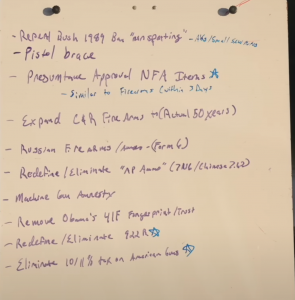 - Repeal Bush 1989 Ban "non sporting" - AKs/Small
- Pistol brace
- Presumtive Approval NFA Items
- Similar to Firearms (within 3 Days
- Expand C&R Firearms to (Actual 50 years)
- Russian Firearms/Ammo - (Form 6)
- Redefine/Eliminate "AP Ammo" (7N6/Chinese 7.62)
- Machine Gun Amnesty
- Remove Obama's 41F Fingerprint/Trust
- Redefine/Eliminate 922R
- Eliminate 10/11% tax on American Guns